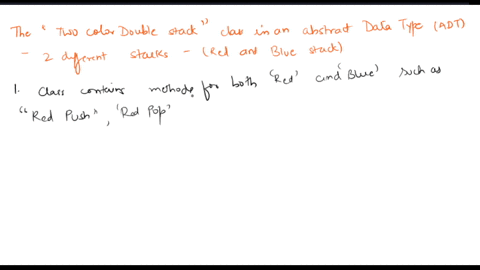 The "Two color Double stack" class in an abstract Data Type (ADT)
- 2 different stacks - (Red and Blue stack)
1. Class contains methods for both 'Red' and 'Blue' such as
"Red Push", 'Red Pop'